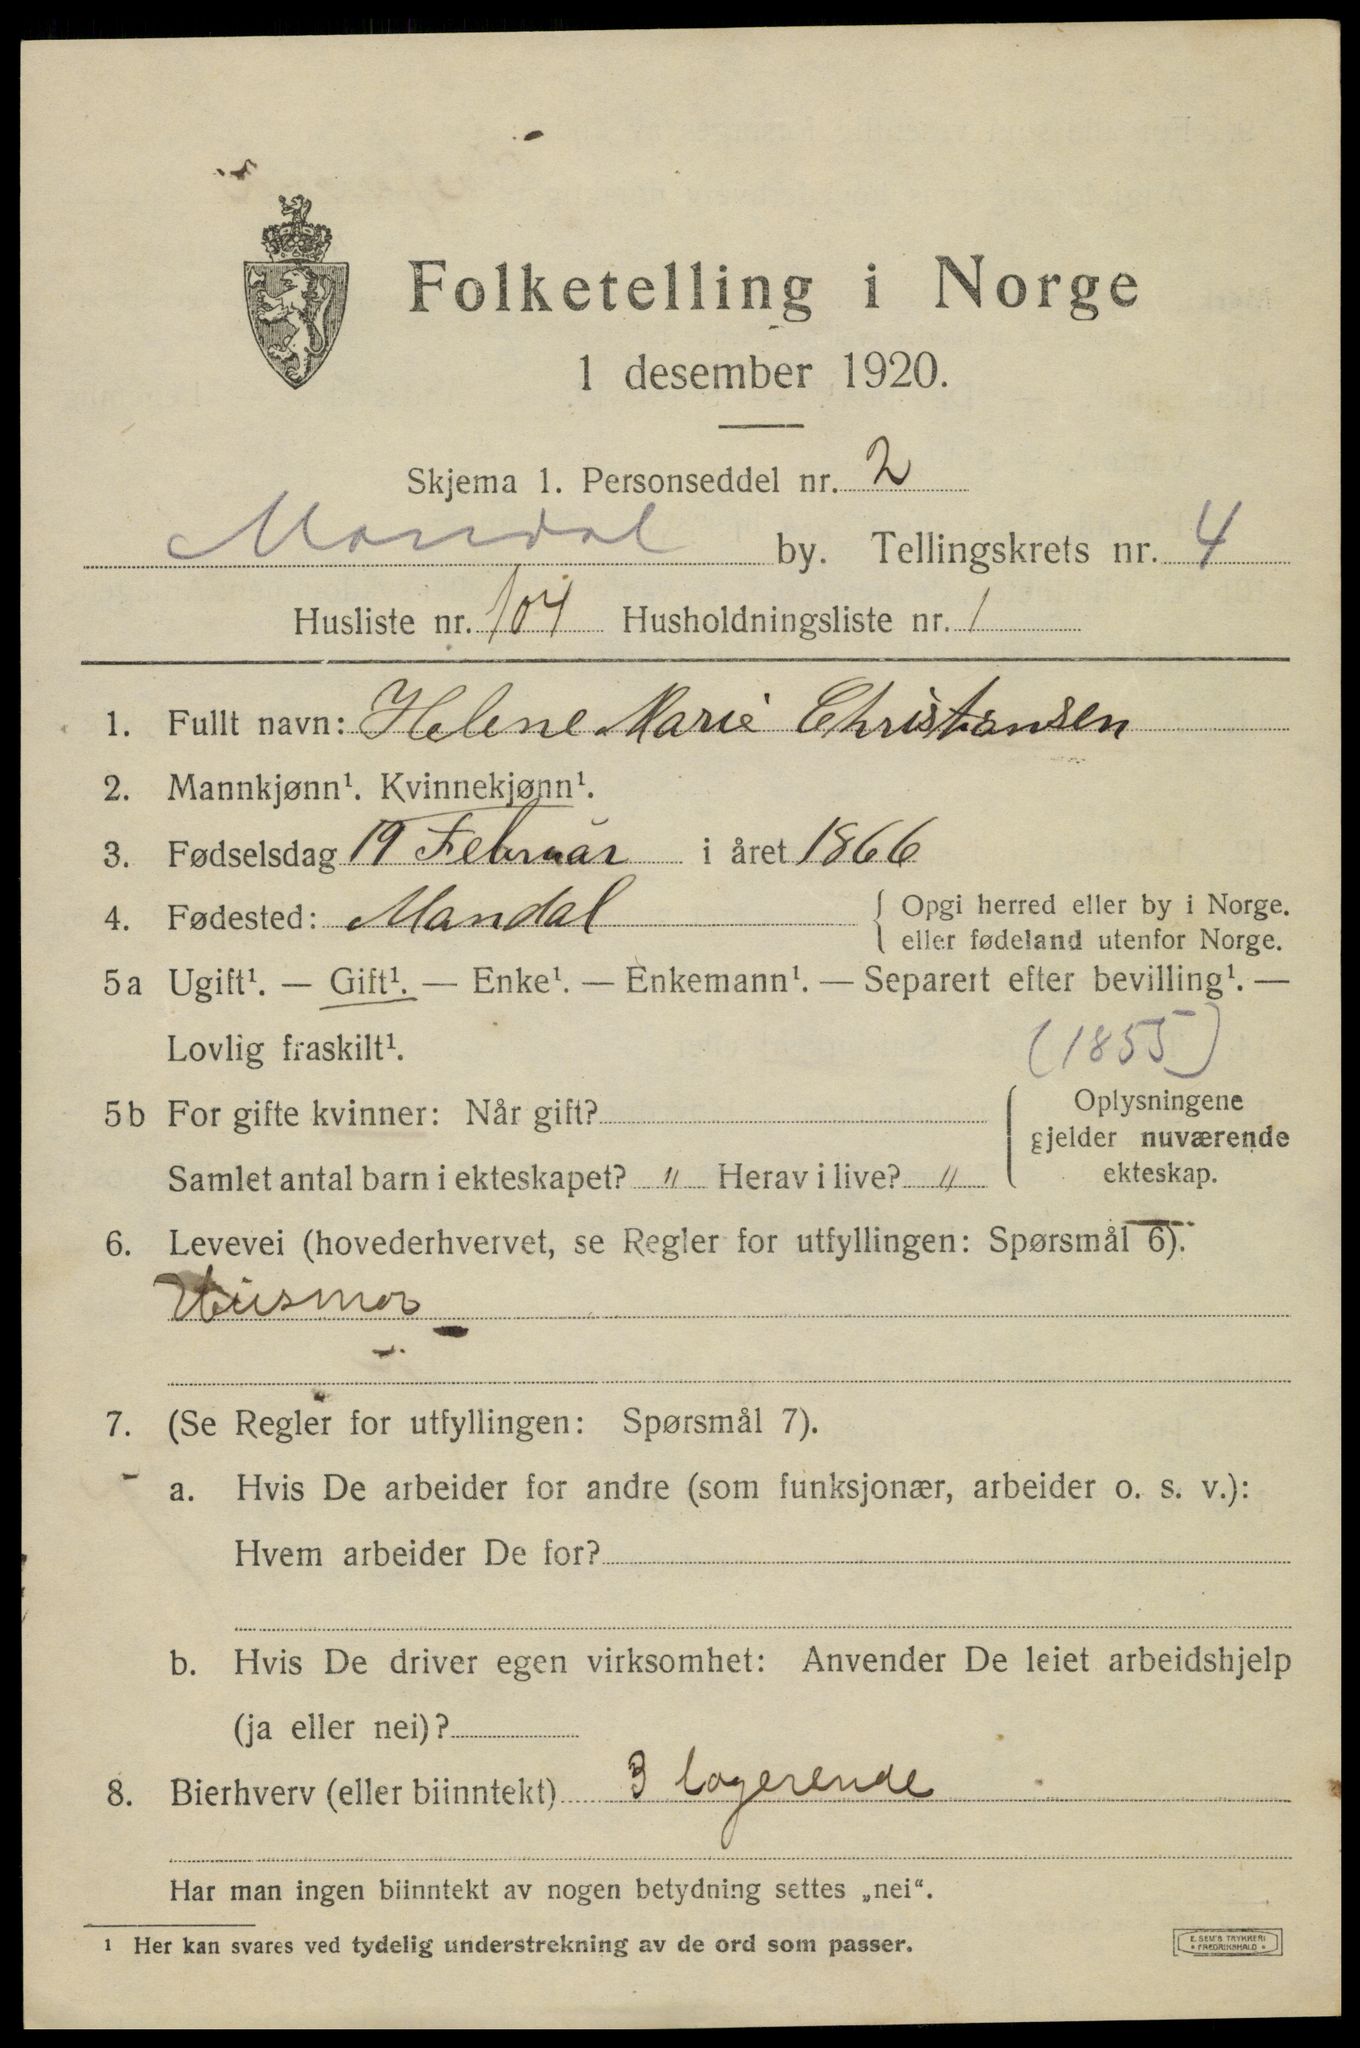 Folketelling i Norge
1 desember 1920.
Skjema 1. Personseddel nr. 2
Mandal by. Tellingskrets nr. 4
Husliste nr. 104 Husholdningsliste nr. 1
1. Fullt navn: Helene Marie Christansen
2. Mannkjønn¹. Kvinnekjønn¹.
3. Fødselsdag 19 Februar i året 1866
4. Fødested: Mandal { Opgi herred eller by i Norge.
eller fødeland utenfor Norge.
5a Ugift¹. — Gift¹. — Enke¹. — Enkemann¹. — Separert efter bevilling¹. —
Lovlig fraskilt¹. (1855)
5b For gifte kvinner: Når gift? { Oplysningene
gjelder nuværende
Samlet antal barn i ekteskapet? " Herav i live? " ekteskap.
6. Levevei (hovederhvervet, se Regler for utfyllingen: Spørsmål 6).
Husmor
7. (Se Regler for utfyllingen: Spørsmål 7).
a. Hvis De arbeider for andre (som funksjonær, arbeider o. s. v.):
Hvem arbeider De for?
b. Hvis De driver egen virksomhet: Anvender De leiet arbeidshjelp
(ja eller nei)?
8. Bierhverv (eller biinntekt) 3 logerende
Har man ingen biinntekt av nogen betydning settes „nei“.
¹ Her kan svares ved tydelig understrekning av de ord som passer.
E. SEM'S TRYKKERI
* FREDRIKSHALD *